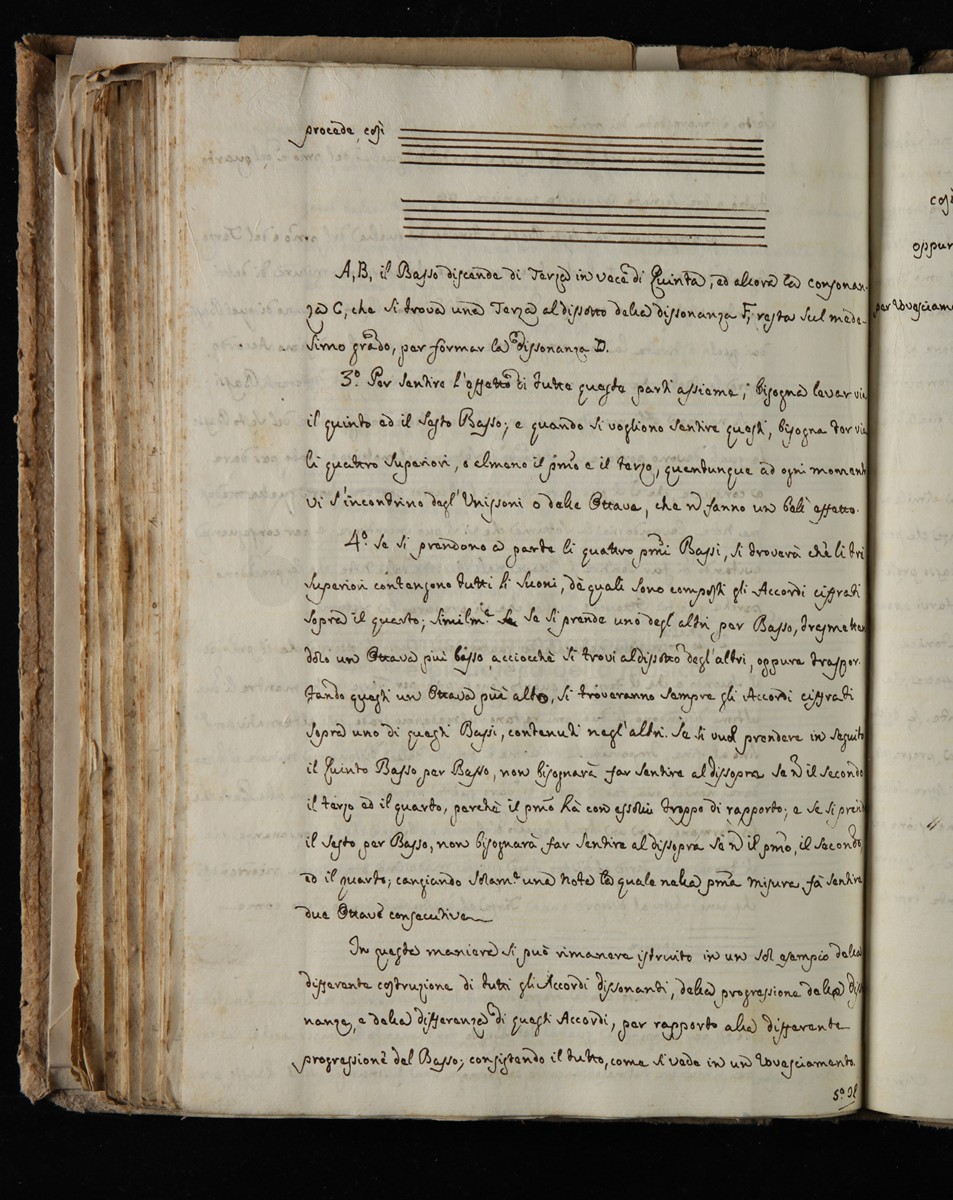 procede, così
A, B, il Basso discende di Terza in vece di Quinta, ed allora la consonan-
za C, che si trova una Terza al dissotto della dissonanza F, resta sul mede-
simo grado, per formar la dissonanza D.
3.° Per sentire l'effetto di tutte queste parti assieme, bisogna levar via
il quinto ed il Sesto Basso; e quando si vogliono sentire questi, bisogna tor via
li quattro superiori, o almeno il pmo e il terzo, quantunque ad ogni momento
vi s'incontrino degl'Unissoni o delle Ottave, che ñ fanno un bell'effetto.
4.° Se si prendono a parte li quattro pmi Bassi, si troverà che li tri
Superiori contengono tutti li Suoni, da quali sono composti gli Accordi ciffrati
sopra il quarto; similmte se si prende uno degl'altri per Basso, trasmetten
dolo un Ottava più basso acciocchè si trovi al dissotto degl'altri, oppure traspor-
tando questi un Ottava più alto, si troveranno sempre gli Accordi ciffrati
sopra uno di questi Bassi, contenuti negl'altri. Se si vuol prendere in seguito
il Quinto Basso per Basso, non bisognarà far sentire al dissopra se ñ il secondo
il terzo ed il quarto, perchè il pmo hà con esso troppo di rapporto; e se si prende
il Sesto per Basso, non bisognarà far sentire al dissopra se ñ il pmo, il secondo,
ed il quarto; cangiando solamte una Nota la quale nella pma misura fà sentire
due Ottave consecutive
In questa maniera si può rimanere istruito in un sol esempio della
differente costruzione di tutti gli Accordi dissonanti, della progressione delle disso
nanze, e della differenza di questi Accordi, per rapporto alla differente
progressione del Basso; consistendo il tutto, come si vede in un Rovesciamento.
5.° Il
così
oppur
per Rovesciame